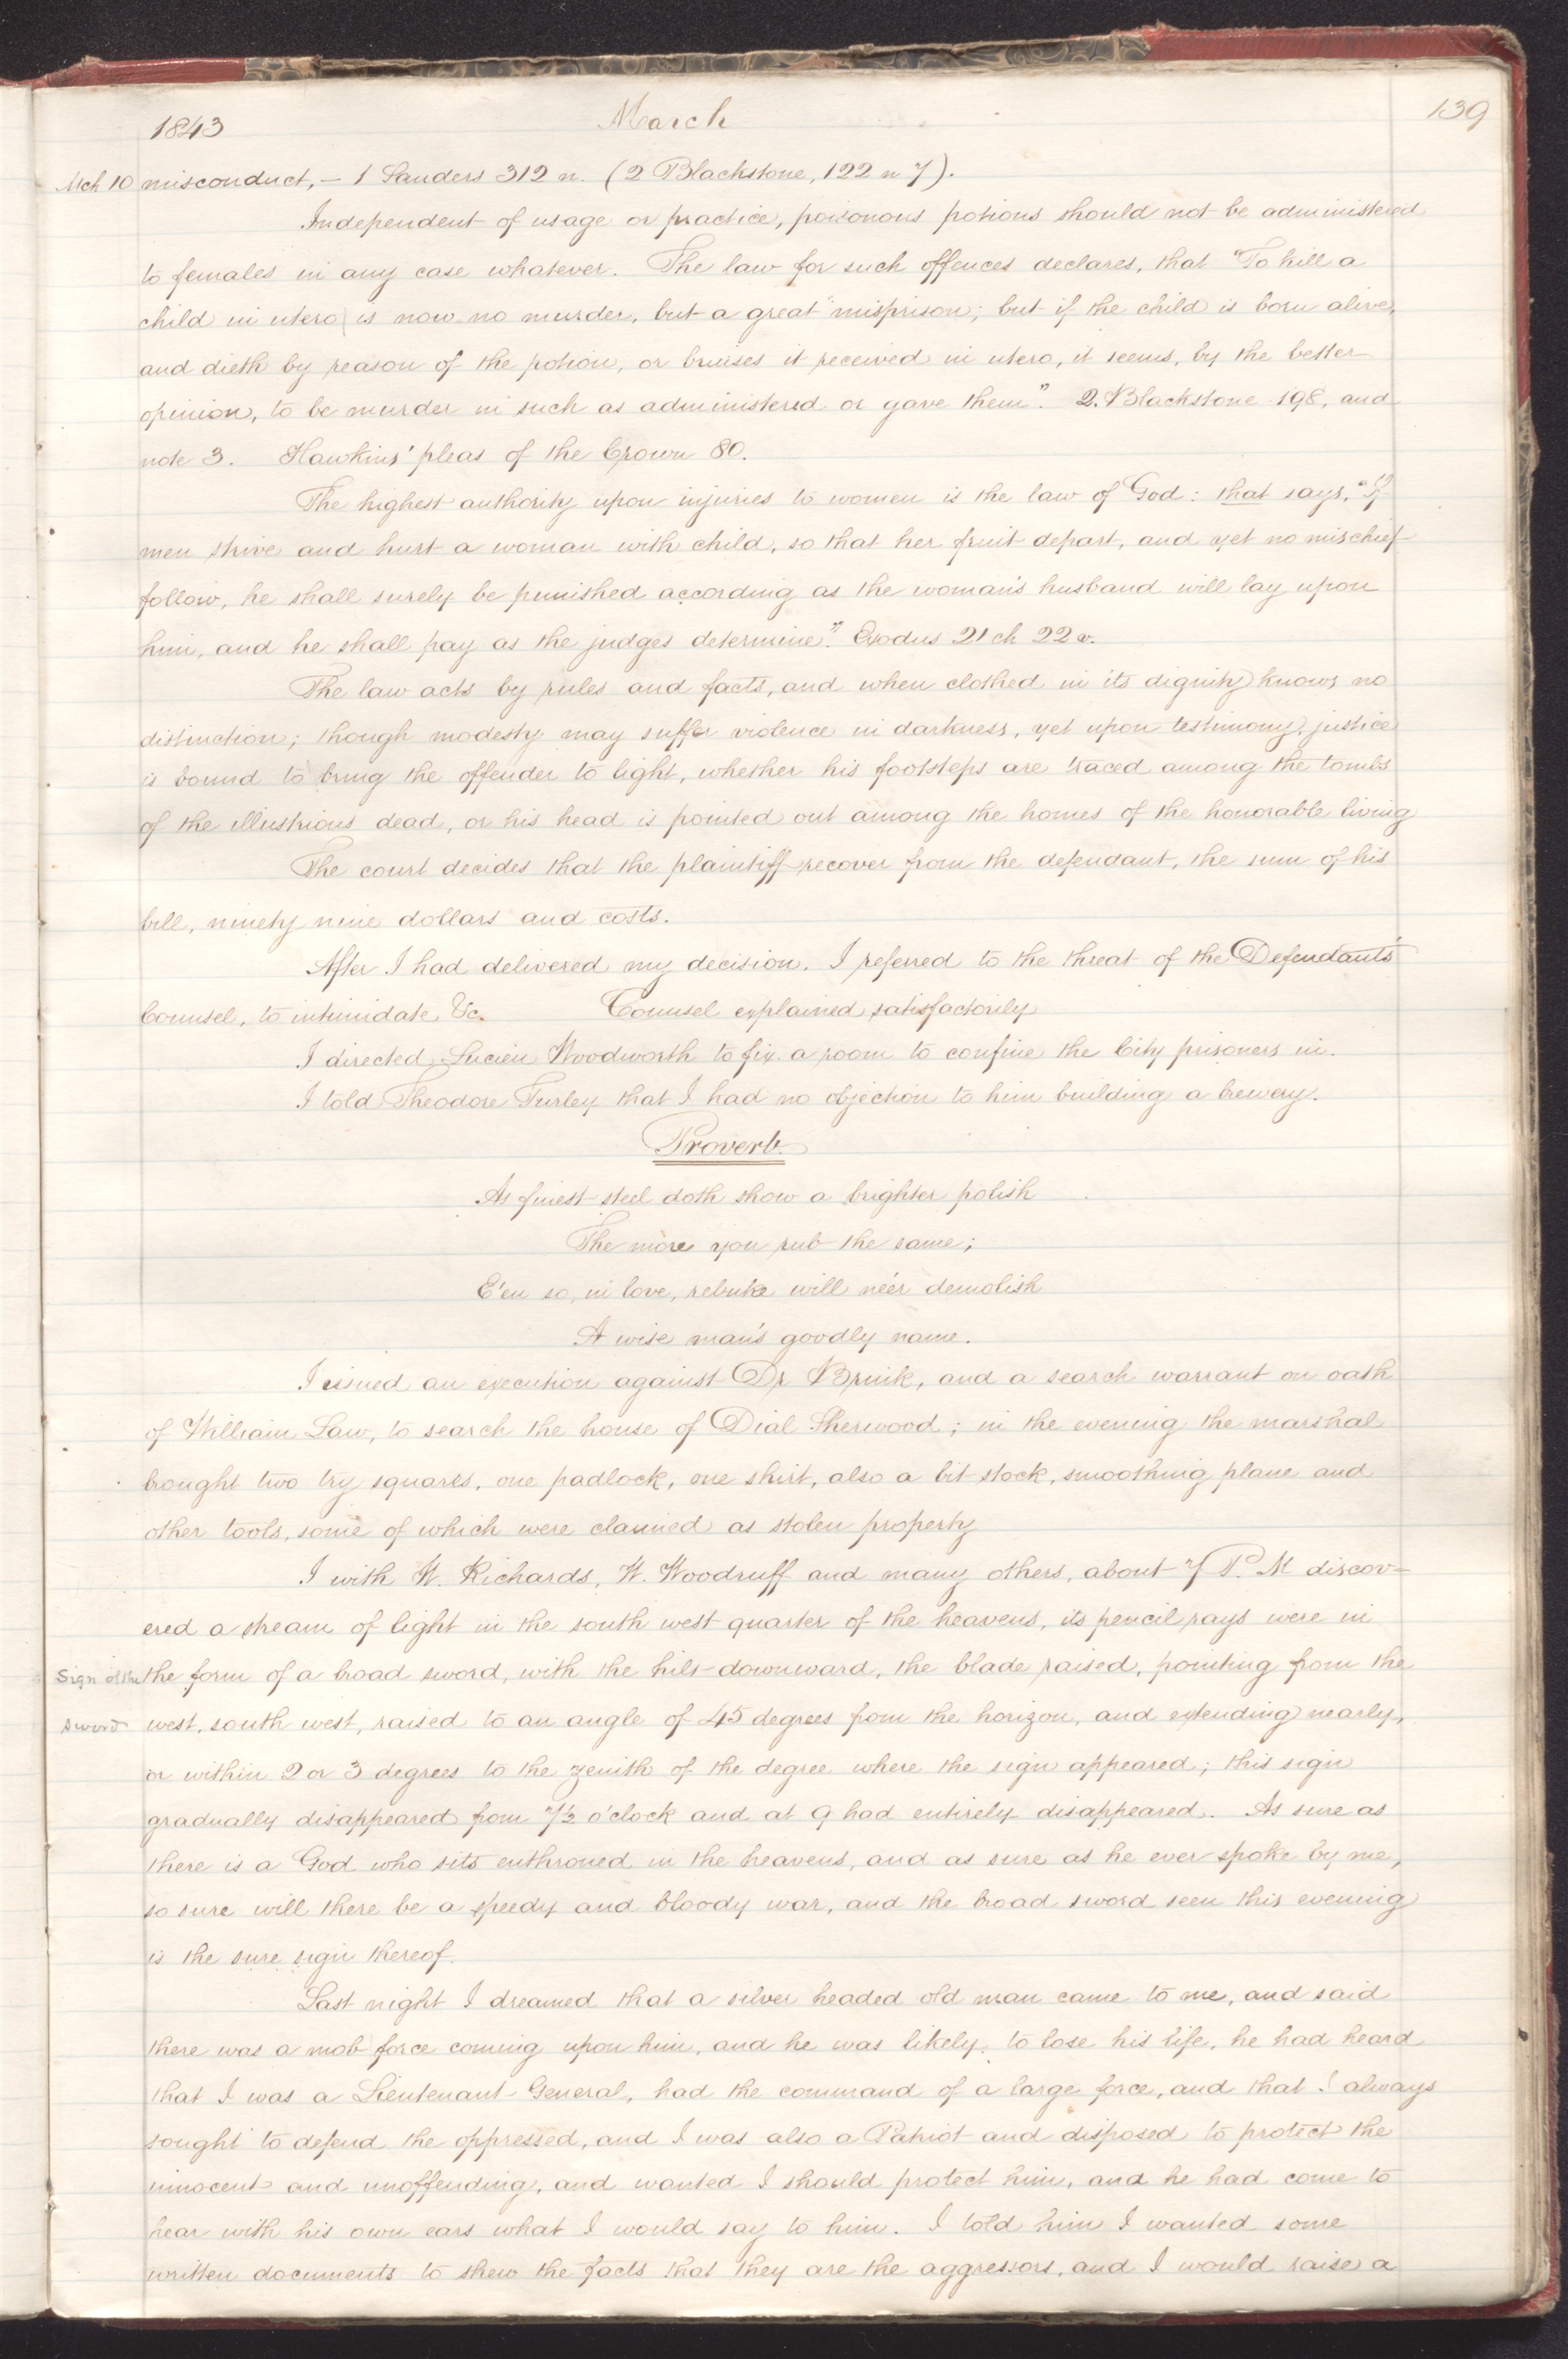 139
1843 March
Mch 10 misconduct, – 1 Sanders 312 n. (2 Blackstone, 122 n 7).
Independent of usage or practice, poisonous potions should not be administered
to females in any case whatever. The law for such offences declares, that "To kill a
child in utero is now no murder, but a great "misprison; but if the child is born alive,
and dieth by reason of the potion, or bruises it received in utero, it seems, by the better
opinion, to be murder in such as administered or gave them". 2. Blackstone 198, and
note 3. Hawkins' pleas of the Crown 80.
The highest authority upon injuries to women is the law of God: that says, "If
men strive and hurt a woman with child, so that her fruit depart, and yet no mischief
follow, he shall surely be punished according as the woman's husband will lay upon
him, and he shall pay as the judges determine". Exodus 21 ch 22 v.
The law acts by rules and facts, and when clothed in its dignity knows no
distinction; though modesty may suffer violence in darkness, yet upon testimony, justice
is bound to bring the offender to light, whether his footsteps are traced among the tombs
of the illustrious dead, or his head is pointed out among the homes of the honorable living
The court decides that the plaintiff recover from the defendant, the sum of his
bill, ninety nine dollars and costs.
After I had delivered my decision. I referred to the threat of the Defendant's
Counsel, to intimidate &c. Counsel explained satisfactorily
I directed Lucien Woodworth to fix a room to confine the City prisoners in.
I told Theodore Turley that I had no objection to him building a brewery.
Proverb.
As finest steel doth show a brighter polish
The more you rub the same;
E'en so, in love, rebuke will ne'er demolish
A wise man's goodly name.
I issued an execution against Dr Brink, and a search warrant on oath
of William Law, to search the house of Dial Sherwood; in the evening the marshal
brought two try squares, one padlock, one shirt, also a bit stock, smoothing plane and
other tools, some of which were claimed as stolen property
I with W. Richards, W. Woodruff and many others, about 7 P. M discov=
ered a stream of light in the south west quarter of the heavens, its pencil rays were in
Sign of the the form of a broad sword, with the hilt downward, the blade raised, pointing from the
sword west, south west, raised to an angle of 45 degrees from the horizon, and extending nearly,
or within 2 or 3 degrees to the zenith of the degree where the sign appeared; this sign
gradually disappeared from 7½ o'clock and at 9 had entirely disappeared. As sure as
there is a God who sits enthroned in the heavens, and as sure as he ever spoke by me,
so sure will there be a speedy and bloody war, and the broad sword seen this evening
is the sure sign thereof.
Last night I dreamed that a silver headed old man came to me, and said
there was a mob force coming upon him, and he was likely to lose his life, he had heard
that I was a Lieutenant General, had the command of a large force, and that I always
sought to defend the oppressed, and I was also a Patriot and disposed to protect the
innocent and unoffending, and wanted I should protect him, and he had come to
hear with his own ears what I would say to him. I told him I wanted some
written documents to shew the facts that they are the aggressors, and I would raise a